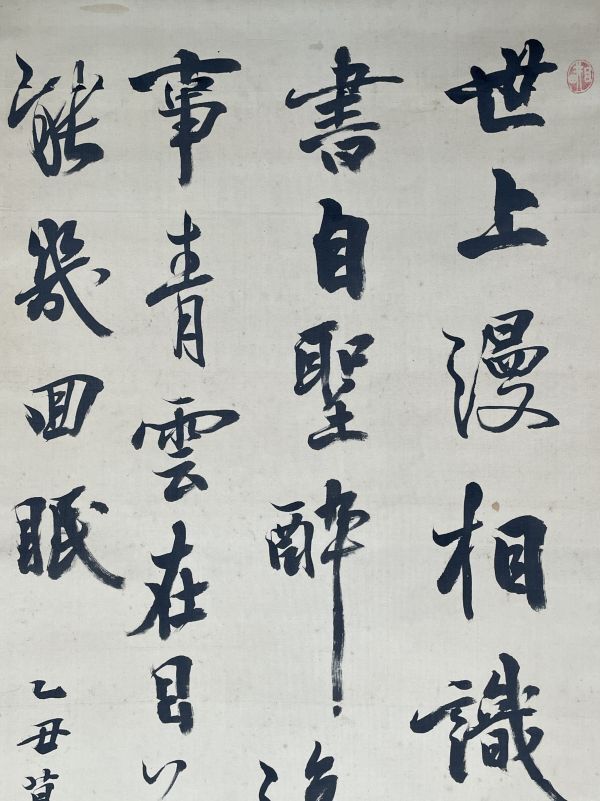 世上漫相識
書自聖醉後
事青雲在目
能幾回眠
乙丑